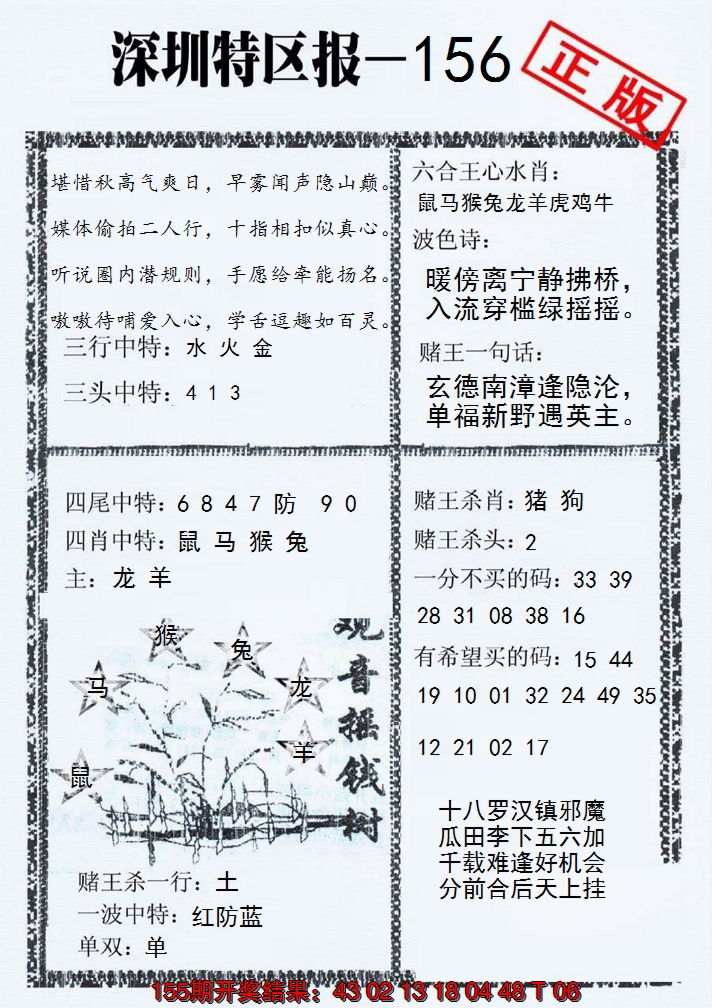 深圳特区报-156
正版
堪惜秋高气爽日，早雾闻声隐山巅。
媒体偷拍二人行，十指相扣似真心。
听说圈内潜规则，手愿给牵能扬名。
嗷嗷待哺爱入心，学舌逗趣如百灵。
三行中特：水 火 金
三头中特：4 1 3
六合王心水肖：
鼠马猴兔龙羊虎鸡牛
波色诗：
暖傍离宁静拂桥，
入流穿槛绿摇摇。
赌王一句话：
玄德南漳逢隐沦，
单福新野遇英主。
四尾中特：6 8 4 7 防 9 0
四肖中特：鼠 马 猴 兔
主：龙 羊
猴
兔
马
龙
羊
鼠
观音摇钱树
赌王杀一行：土
一波中特：红防蓝
单双：单
赌王杀肖：猪 狗
赌王杀头：2
一分不买的码：33 39
28 31 08 38 16
有希望买的码：15 44
19 10 01 32 24 49 35
12 21 02 17
十八罗汉镇邪魔
瓜田李下五六加
千载难逢好机会
分前合后天上挂
155期开奖结果：43 02 13 18 04 48 T 06